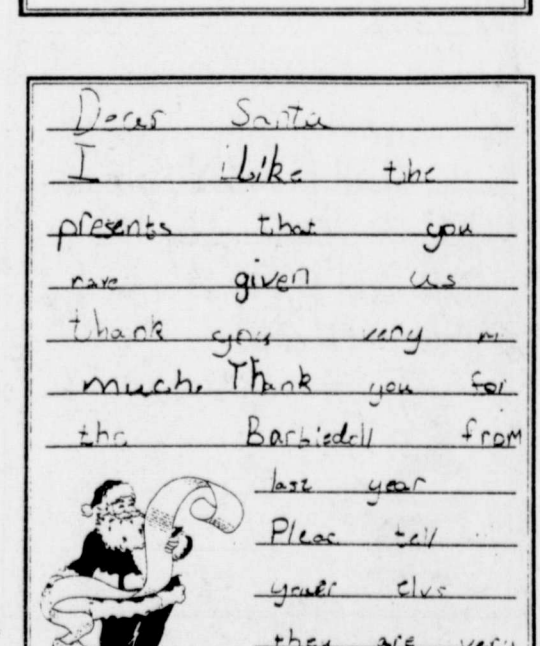 Dear Santa
I Like the
presents that you
have given us
thank you very m
much. Thank you for
the Barbiedoll from
last year
Pleas tell
youer elvs
they are very